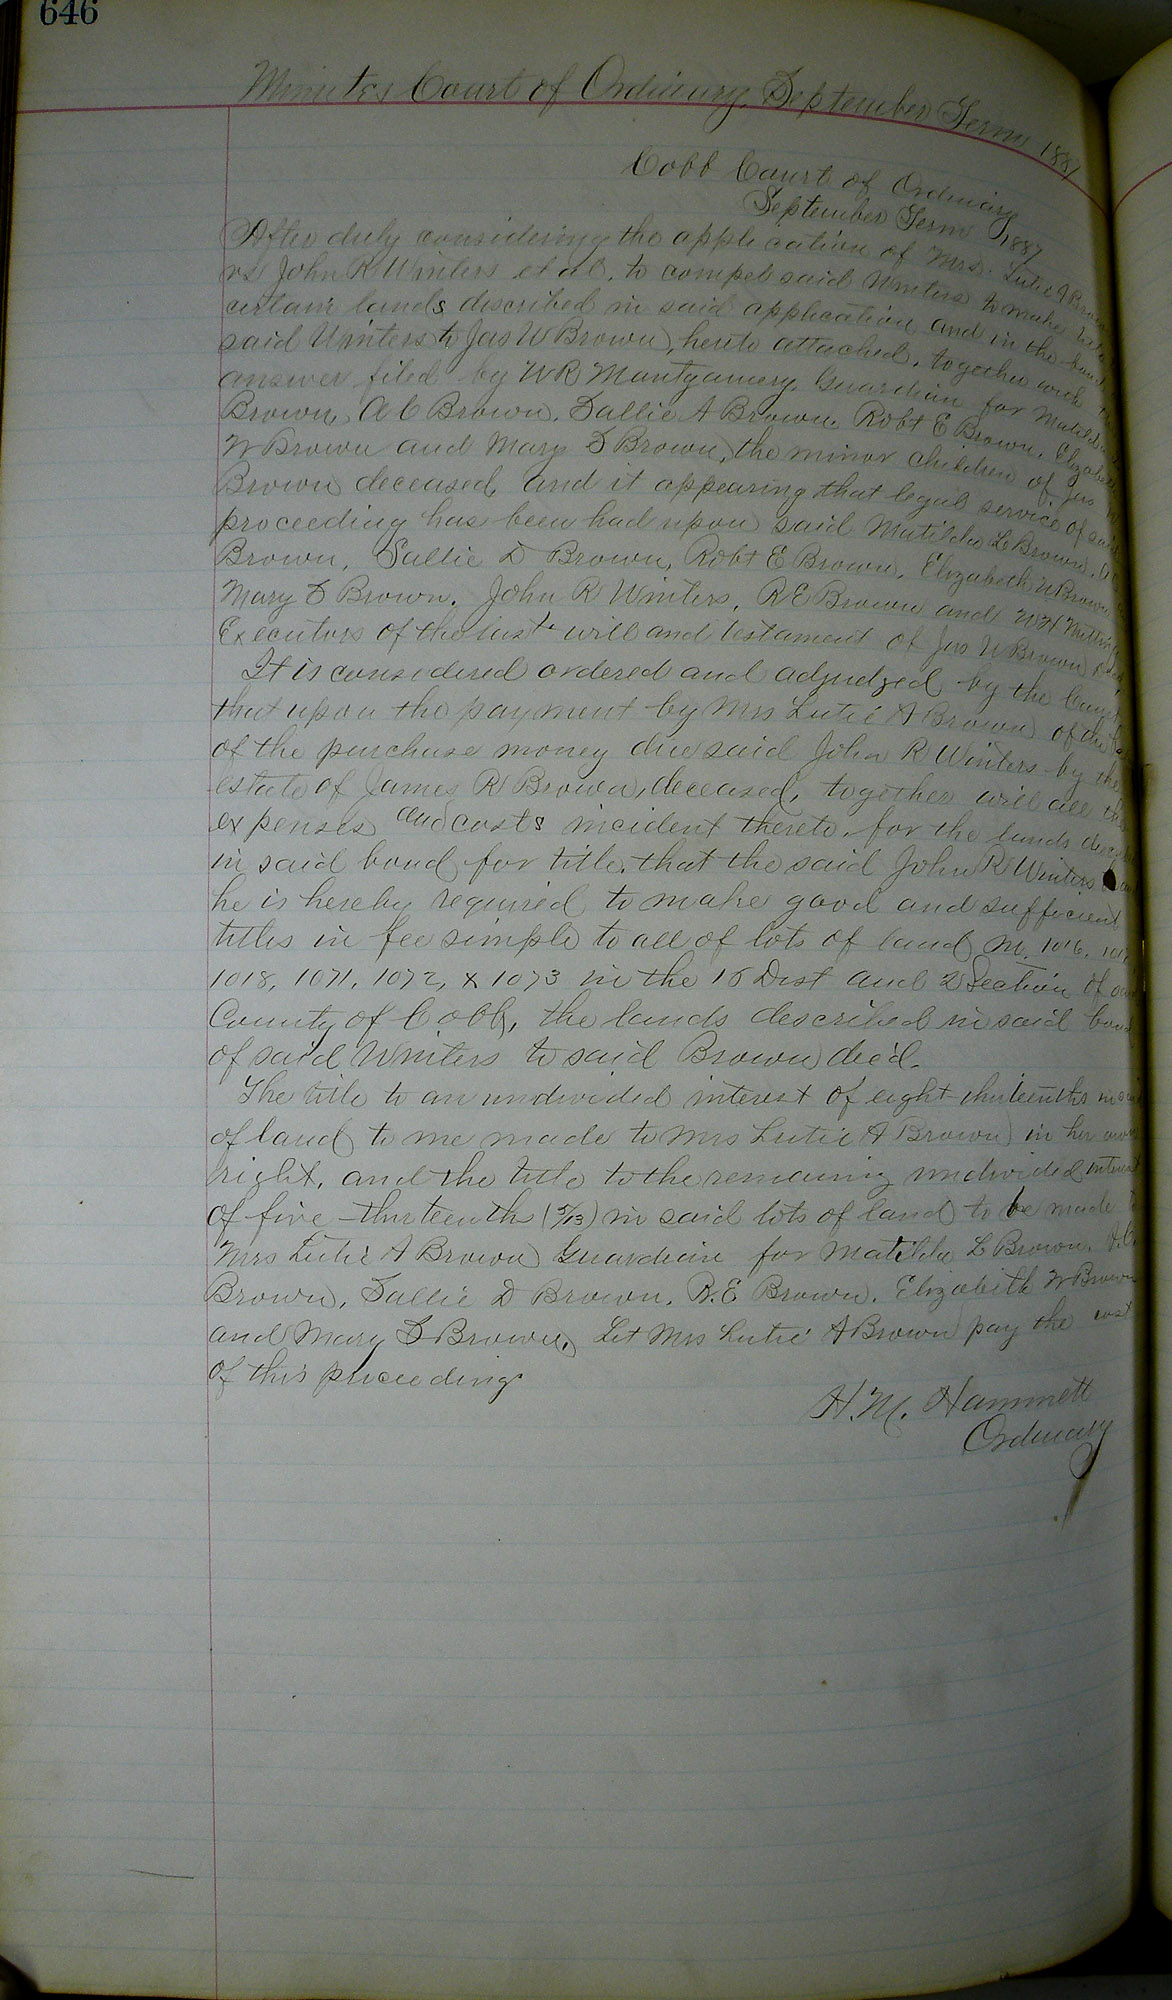 646
Minutes Court of Ordinary, September Term 1887
Cobb Court of Ordinary
September Term 1887
After duly considering the application of Mrs. Lutie A Brown
vs John R Winters et al, to compel said Winters to make titles
certain lands discribed in said application and in the bond
said Winters to Jas W Brown, hereto attached, together with the
answer filed by W R Montgomery, Guardian for Matilda
Brown, A C Brown, Sallie A Brown, Robt E Brown, Elizabeth
W Brown and Mary S Brown, the minor children of Jas W
Brown deceased, and it appearing that legal service of said
proceeding has been had upon said Matilda L Brown, A C
Brown, Sallie D Brown, Robt E Brown, Elizabeth W Brown
Mary S Brown. John R Winters, R E Brown and W H
Executors of the last will and testament of Jas W Brown
It is considered ordered and adjudged by the Court
that upon the payment by Mrs Lutie A Brown of the
of the purchase money due said John R Winters by the
estate of James R Brown, deceased, together will all the
expenses and costs incident thereto, for the lands
in said bond for title, that the said John R Winters
he is hereby required to make good and sufficient
titles in fee simple to all of lots of land No. 1016, 1017,
1018, 1071, 1072, & 1073 in the 16 Dist and 2 Section of said
County of Cobb, the lands described in said bond
of said Winters to said Brown dec'd.
The title to an undivided interest of eight thirteenths in said
of land to me made to Mrs Lutie A Brown in her own
right, and the title to the remaining undivided interest
of five-thirteenths (5/13) in said lots of land to be made to
Mrs Lutie A Brown Guardian for Matilda L Brown, A. C.
Brown, Sallie D Brown, R. E Brown, Elizabeth W Brown
and Mary S Brown, Let Mrs Lutie A Brown pay the cost
of this proceeding
H. M. Hammett
Ordinary